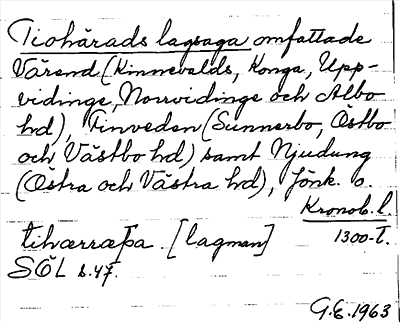 Tiohärads lagsaga omfattade
Värend (Kinnevalds, Konga, Upp-
vidinge, Norrvidinge och Albo
hd), Finveden (Sunnerbo, Östbo
och Västbo hd) samt Njudung
(Östra och Västra hd), Jönk. o.
Kronob. l.
tihærraþa. [lagman] 1300-t.
SÖL s. 47.
G.E. 1963